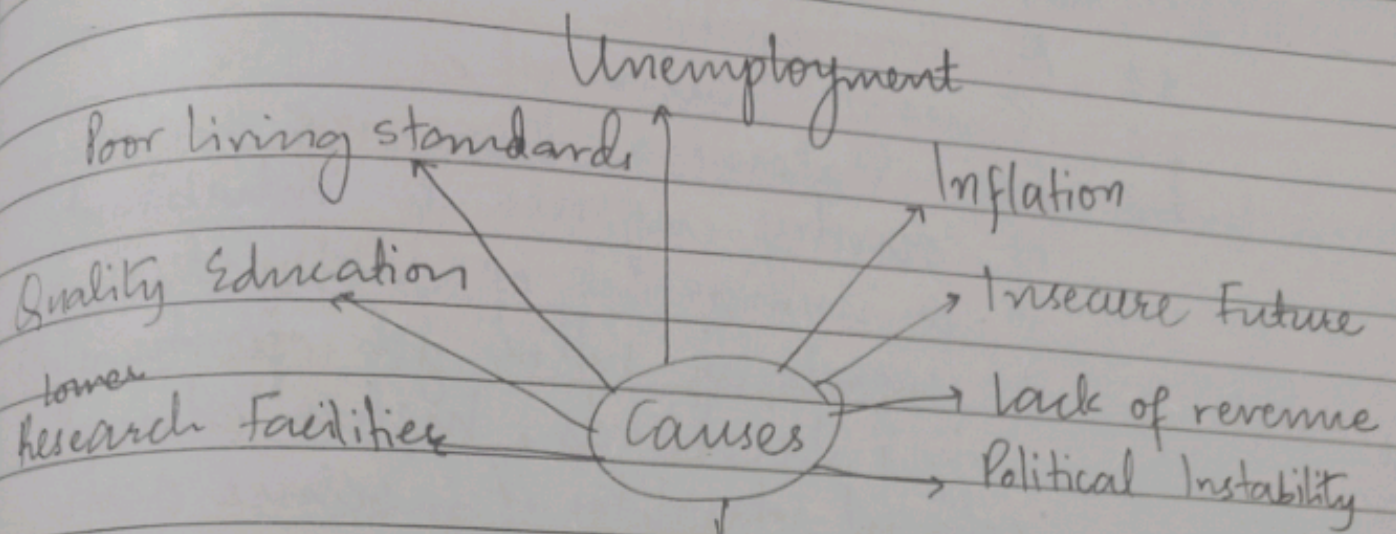 Unemployment
Poor living standards
Inflation
Quality Education
Insecure Future
lower
Research Facilities
Causes
Lack of revenue
Political Instability